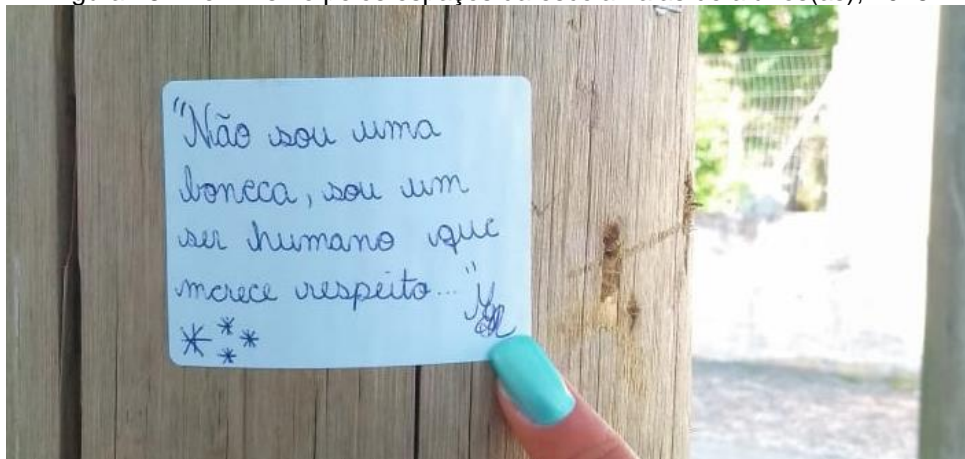 "Não sou uma
boneca, sou um
ser humano que
merece respeito..."